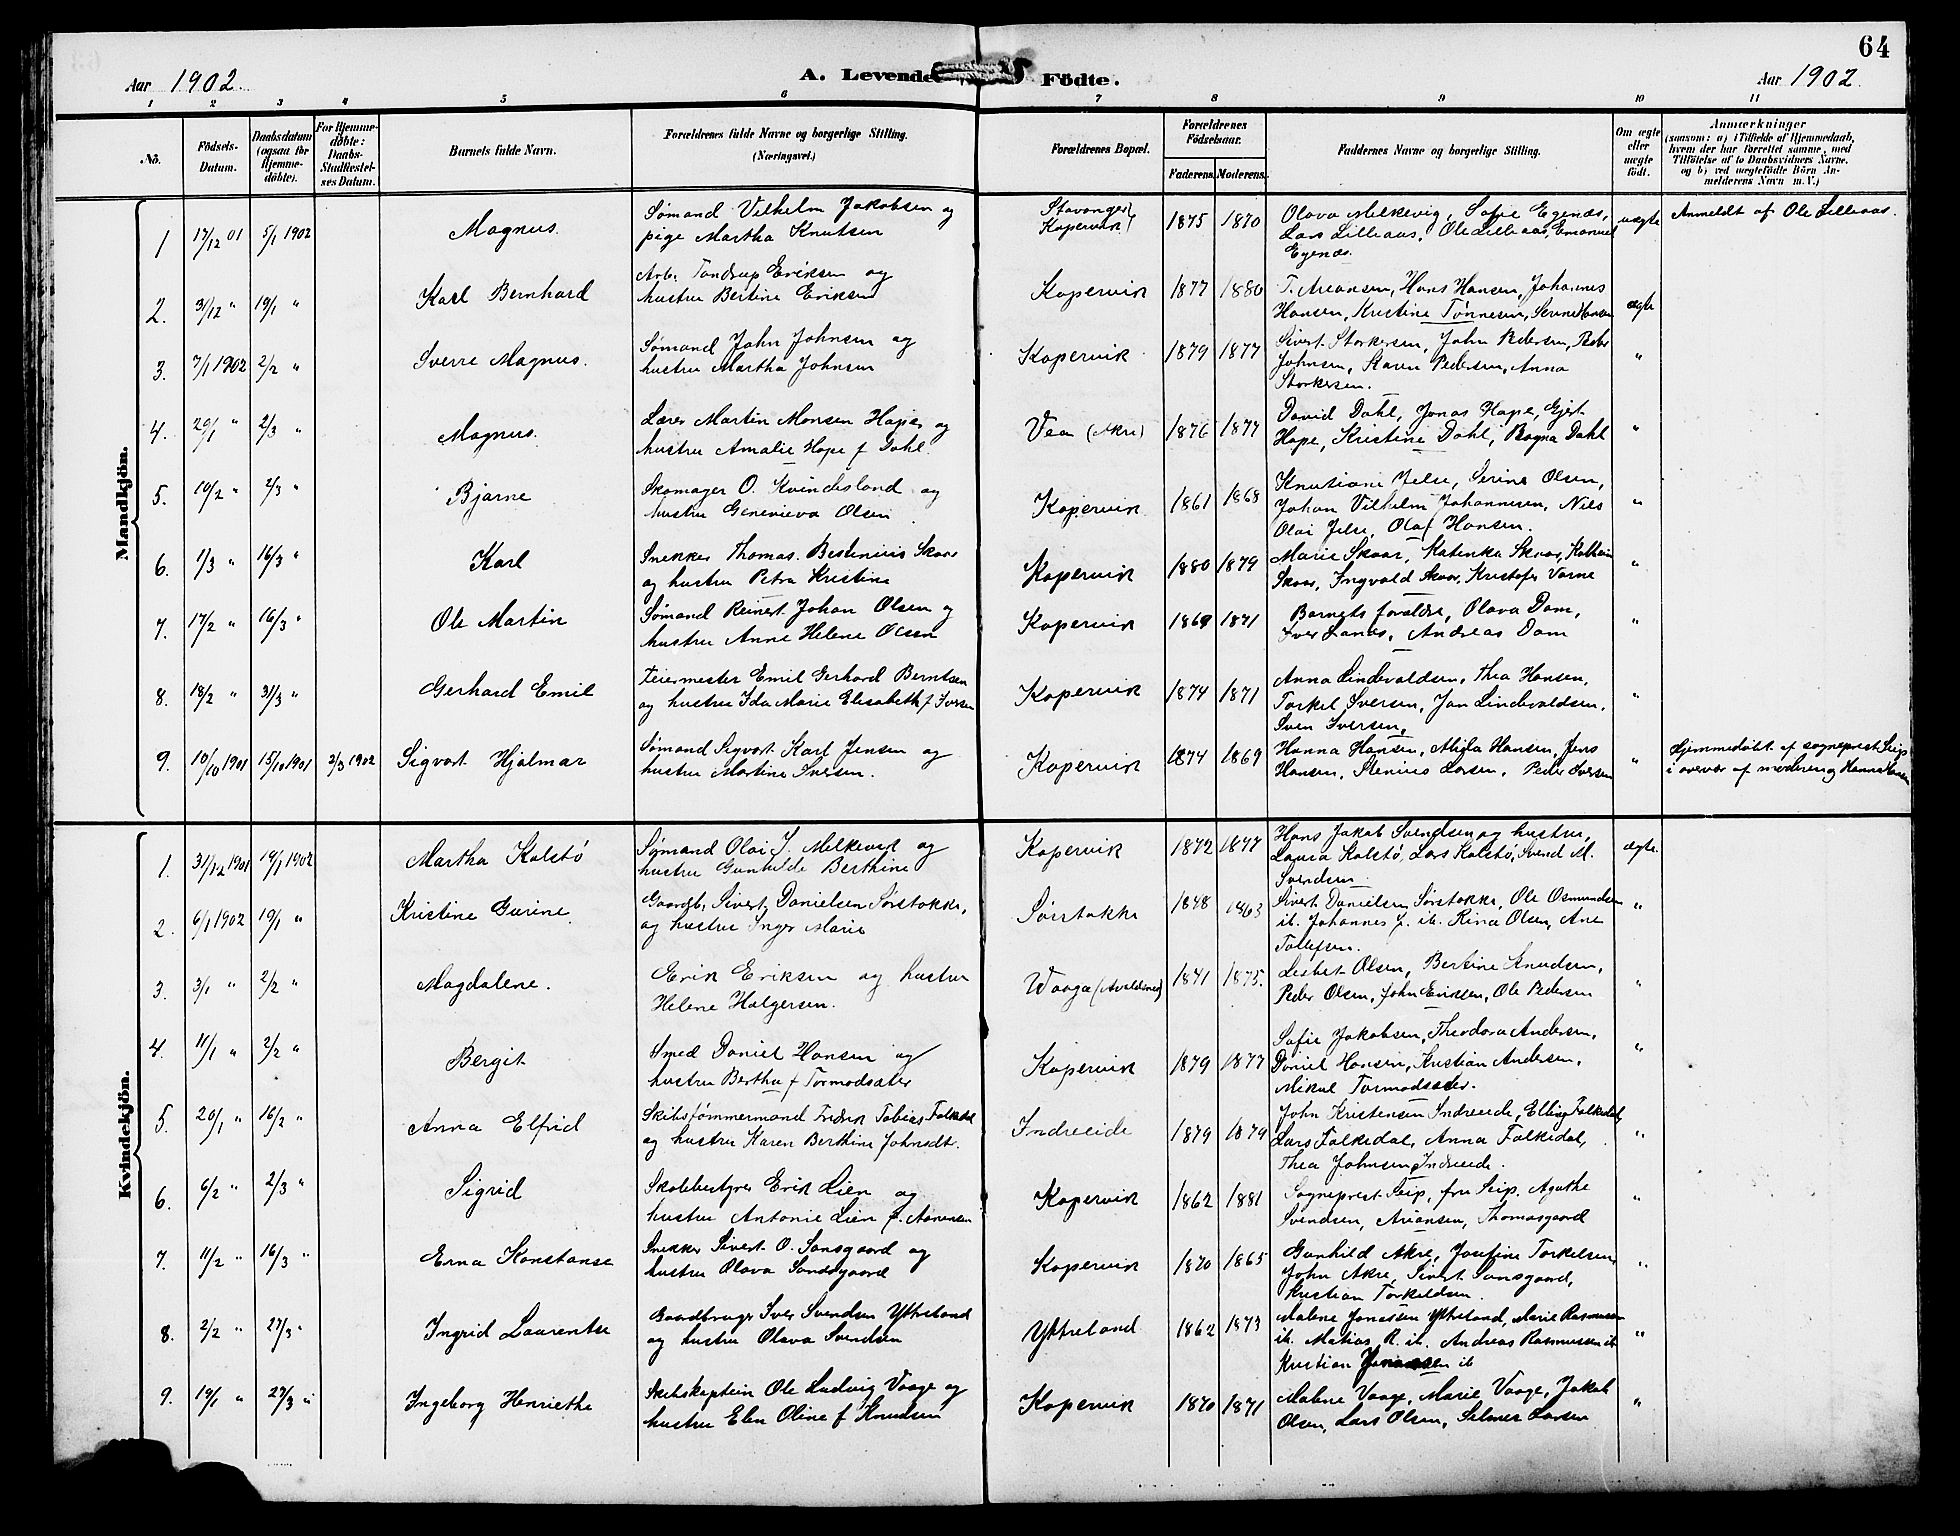 64
Aar 1902.
A. Levende Födte.
Aar 1902.
1 2 3 4 5 6 7 8 9 10 11
No.
Födsels-Datum.
Daabsdatum (ogsaa for Hjemme-döbte).
For Hjemme-döbte: Daabs-Stadfæstel-ses Datum.
Barnets fulde Navn.
Forældrenes fulde Navne og borgerlige Stilling. (Næringsvei.)
Forældrenes Bopæl.
Forældrenes Födselsaar.
Faderens. Moderens.
Faddernes Navne og borgerlige Stilling.
Om ægte eller uægte födt.
Anmærkninger
(saasom: a) i Tilfælde af Hjemmedaab, hvem der har forrettet samme, med Tilföielse af to Daabsvidners Navne, og b) ved uægtefödte Börn An-melderens Navn m. V.)
Mandkjön.
1 17/12 01 5/1 1902 Magnus. Sømand Vilhelm Jakobsen og pige Martha Knutsen Stavanger Kopervik 1875 1870 Olava Melkevig, Sofie Egenæs, Lars Lilleaas, Ole Lilleaas, Emanuel Egenæs. uægte Anmeldt af Ole Lilleaas.
2. 31/12 " 19/1 " Karl Bernhard Arb. Tandrup Eriksen og hustru Bertine Eriksen Kopervik 1877 1880 T. Areansen, Hans Hansen, Johannes Hansen, Kristine Tønnesen, Hansen ægte
3. 7/1 1902 2/2 " Sverre Magnus. Sømand John Johnsen og hustru Martha Johnsen Kopervik 1879 1877 Sivert Storkersen, John Pedersen, Peder Johnsen, Karen Pedersen, Anna Storkersen. "
4. 29/1 " 2/3 " Magnus. Lærer Martin Monsen Hope og hustru Amalie Hope f Dahl. Vea (Akre) 1876 1877 David Dahl, Jonas Hope, Gjert Hope, Kristine Dahl, Ragna Dahl "
5. 10/2 " 2/3 " Bjarne Skomager O. Kvindesland og hustru Genevieva Olsen Kopervik 1861 1868 Knutiane Jelse, Serine Olsen, Johan Vilhelm Johannesen, Nils Olai Jelse, Olaf Hansen. "
6. 1/3 " 16/3 " Karl Snekker Thomas Bestenius Skaar og hustru Petra Kristine Kopervik 1880 1879 Marie Skaar, Katinka Skaar, Skaar, Ingvald Skaar, Kristofer Varne "
7. 17/2 " 16/3 " Ole Martin Sømand Reinert Johan Olsen og hustru Anne Helene Olsen Kopervik 1869 1871 Barnets forældre, Olava Dam, Iver Lanes, Andreas Dam "
8. 18/2 " 31/3 " Gerhard Emil Feiermester Emil Gerhard Berntsen og hustru Ida Marie Elisabeth f Iversen Kopervik 1874 1871 Anna Lindevaldsen, Thea Hansen, Torkel Iversen, Jan Lindevaldsen, Sven Iversen, "
9. 10/10 1901 15/10 1901 2/3 1902 Sigvart Hjalmar Sømand Sigvart Karl Jensen og hustru Martine Iversen. Kopervik 1874 1869 Hanna Hansen, Hansen, Jens Hansen, Stenius Larsen, Peder Iversen " Hjemmedøbt af sogneprest Seip i overvær af moderen og Hanna Hansen
Kvindekjön.
1. 31/12 1901 19/1 1902 Martha Kalstø Sømand Olai J. Melkevik og hustru Gunhilde Berthine Kopervik 1872 1877 Hans Jakob Svendsen og hustru, Laura Kalstø, Lars Kalstø, Svend M. Svendsen. ægte.
2. 6/1 1902 19/1 " Kristine Gurine. Gaardb. Sivert Danielsen Sørstokke, og hustru Inger Marie Sørstokke 1848 1863 Sivert Danielsen Sørstokke, Ole Osmundsen ib. Johannes J. ib. Rina Olsen, Ane Tollefsen. "
3. 3/1 " 2/2 " Magdalene. Erik Eriksen og hustru Helene Halgersen. Vaaga (Avaldsnes) 1871 1875. Lisbet Olsen, Bertine Knudsen, Peder Olsen, John Eriksen, Ole Pedersen "
4. 11/1 " 2/2 " Bergit Smed Daniel Hansen og hustru Bertha f Tormodsæter Kopervik 1879 1877 Sofie Jakobsen, Theodora Andersen, Daniel Hansen, Kristian Andersen, Mikal Tormodsæter. "
5. 20/1 " 16/2 " Anna Elfrid Skibstømmermand Fredrik Tobias Falkedal og hustru Karen Berthine Johnsdt. Indreeide 1879 1879 John Kristensen Indreeide, Elling Falkedal, Lars Falkedal, Anna Falkedal, Thea Johnsen Indreeide. "
6. 6/2 " 2/3 " Sigrid Skolebestyrer Erik Lien og hustru Antonie Lien f. Aanensen Kopervik 1862 1881 Sogneprest Seip, fru Seip, Agathe Svendsen, Areansen, Thomasgaard "
7. 11/2 " 16/3 " Erna Konstanse Snekker Sivert O. Sansgaard og hustru Olava Sandsgaard Kopervik 1870 1865 Gunhild Akre, Josefine Torkelsen, John Akre, Sivert Sansgaard, Kristian Torkildsen. "
8. 2/2 " 27/3 " Ingrid Laurentse Gaardbruger Iver Svendsen Ytreland og hustru Olava Svendsen Ytreland 1862 1873 Malene Jonassen Ytreland, Marie Rasmussen ib. Matias R. ib. Andreas Rasmussen ib Kristian Jonassen ib "
9. 19/1 " 27/3 " Ingeborg Henriethe Skibskaptein Ole Ludvig Vaage og hustru Elen Oline f Knudsen Kopervik 1870 1871 Malene Vaage, Marie Vaage, Jakob Olsen, Lars Olsen, Selmer Larsen "